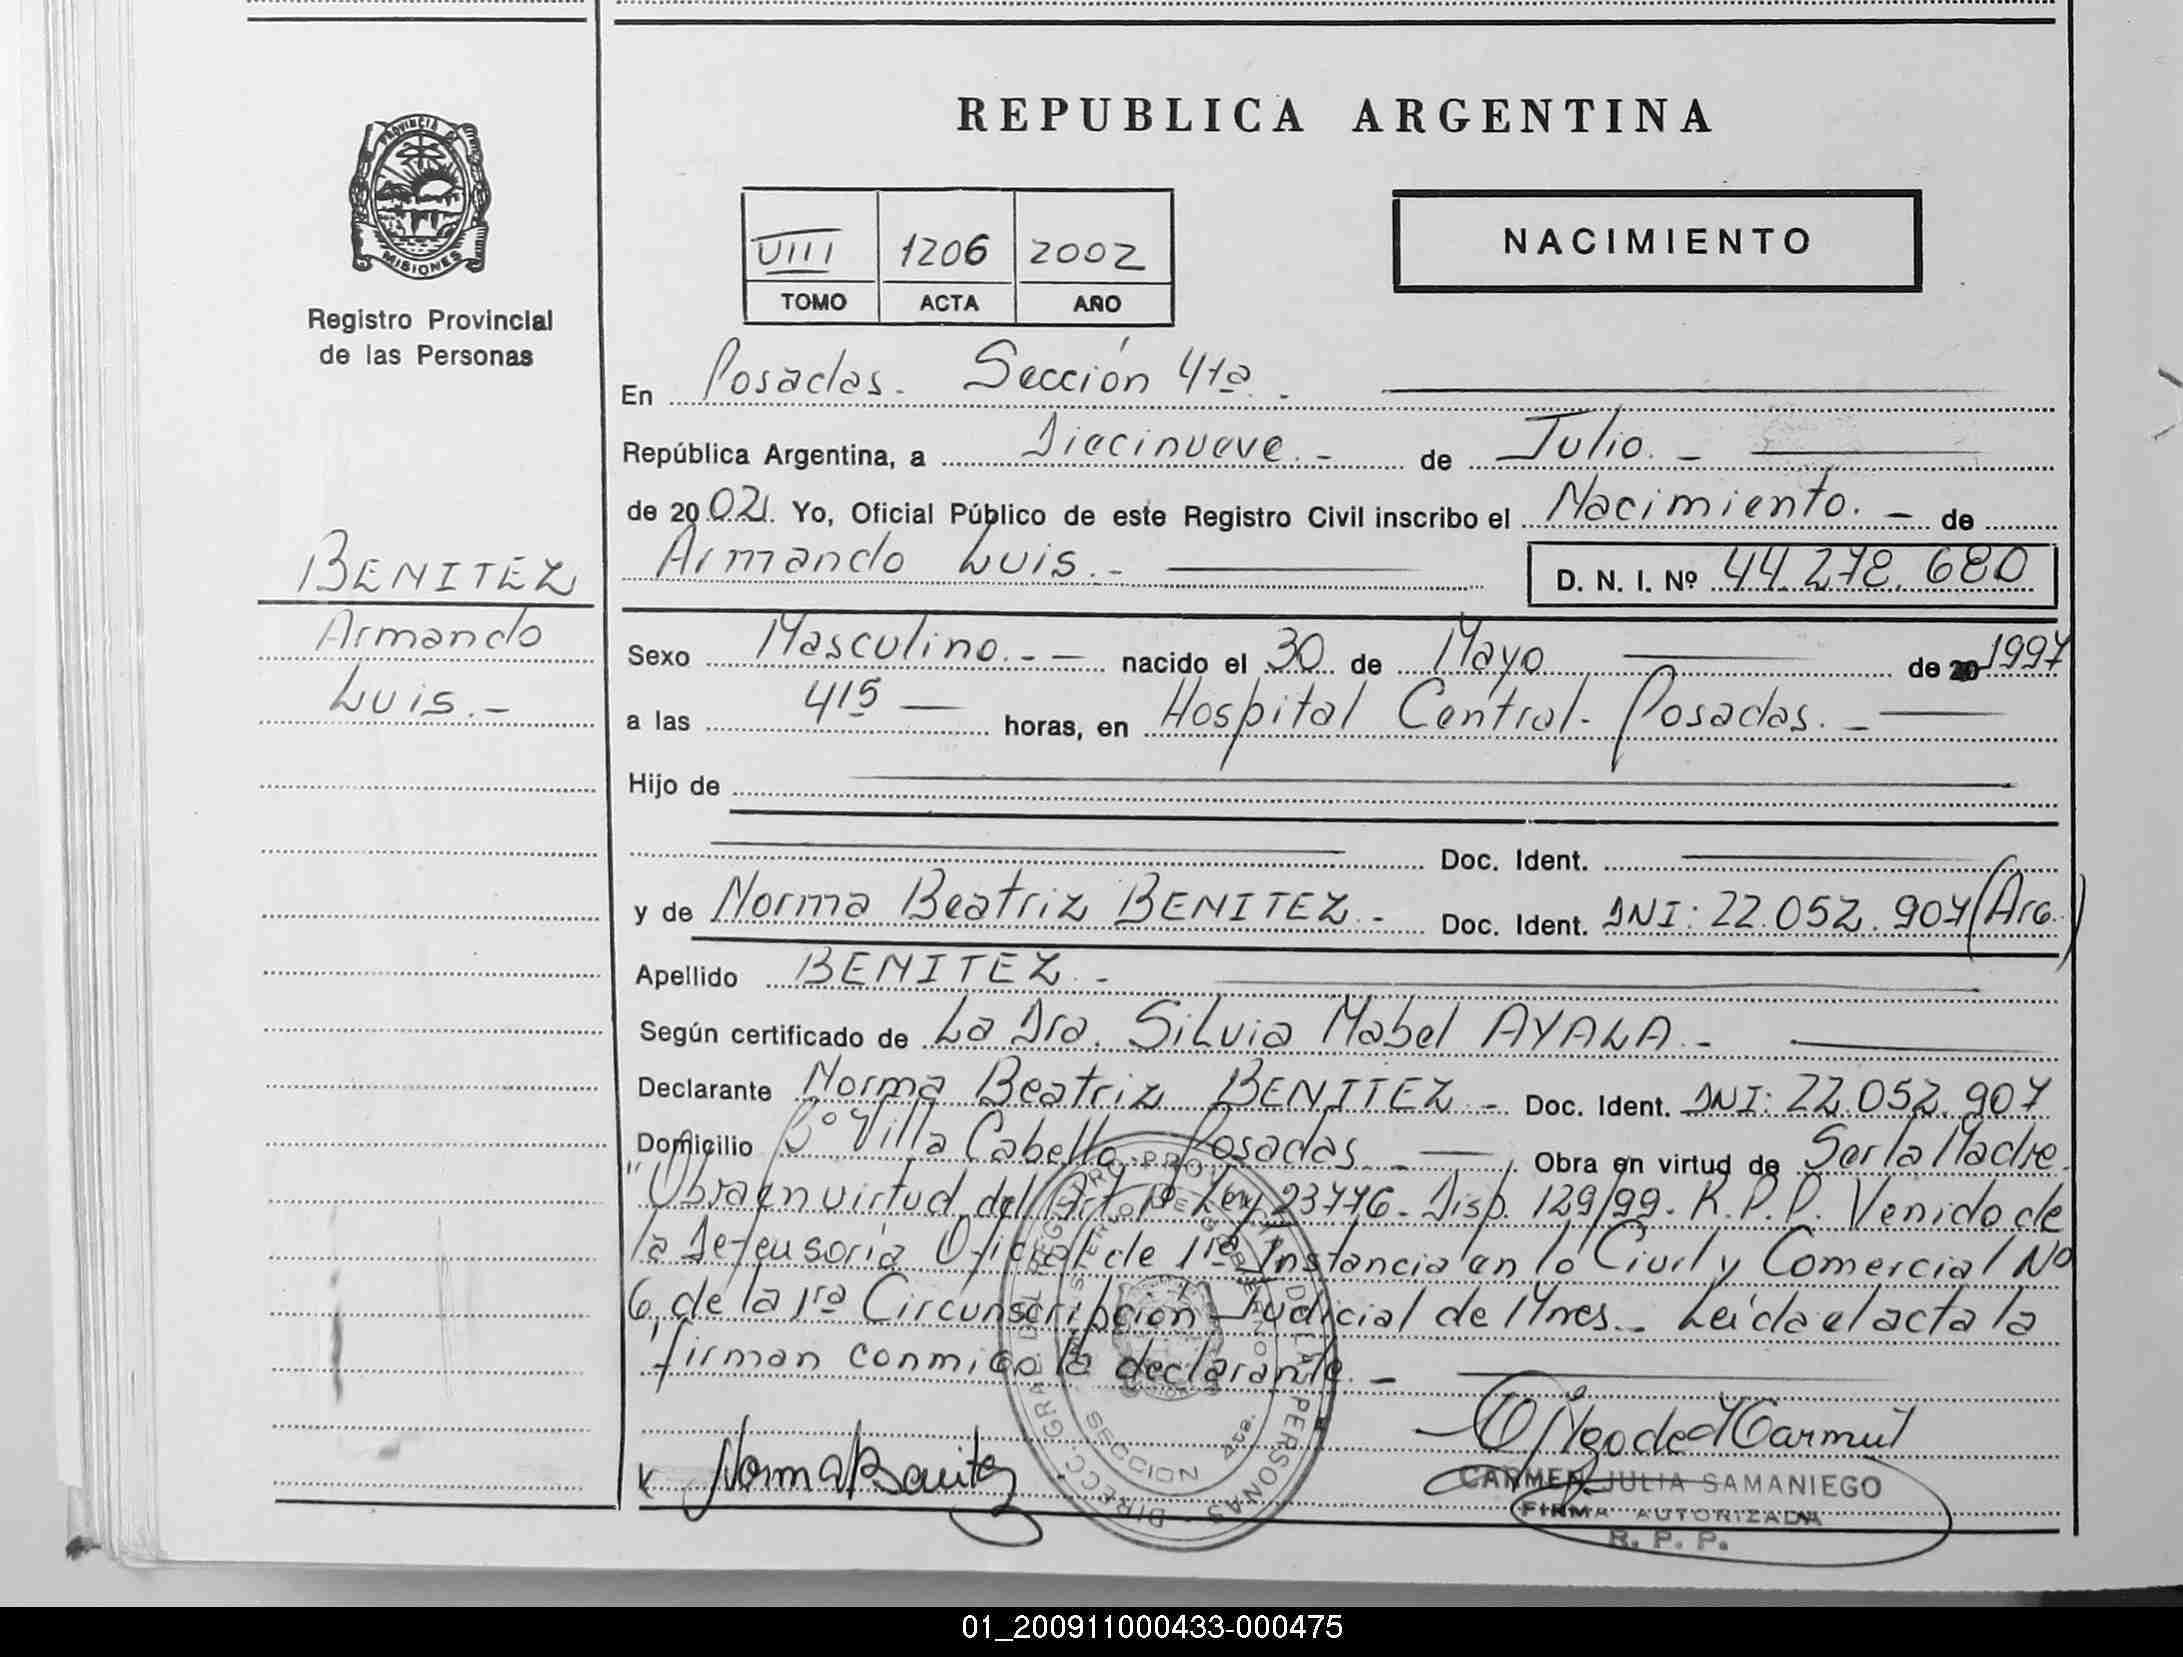 REPUBLICA ARGENTINA
PROVINCIA DE
MISIONES
Registro Provincial
de las Personas
VIII 1206 2002
TOMO ACTA AÑO
NACIMIENTO
En Posadas. Sección 4ta.
República Argentina, a Diecinueve.- de Julio.-
de 2002. Yo, Oficial Público de este Registro Civil inscribo el Nacimiento.- de
Armando Luis.- D. N. I. Nº 44.278.680
BENITEZ
Armando
Luis.-
Sexo Masculino.-- nacido el 30 de Mayo de 20 1997
a las 415 horas, en Hospital Central. Posadas.-
Hijo de
Doc. Ident.
y de Norma Beatriz BENITEZ.- Doc. Ident. DNI: 22.052.907 (Arg.)
Apellido BENITEZ.-
Según certificado de La Dra. Silvia Mabel AYALA.-
Declarante Norma Beatriz BENITEZ.- Doc. Ident. DNI: 22.052.907
Domicilio Bº Villa Cabello Posadas.- Obra en virtud de Ser la Madre.
"Obra en virtud del Art. 1º Ley 23776. Disp. 129/99. R.P.P. Venido de
la Defensoría Oficial de 1ra Instancia en lo Civil y Comercial Nº
6, de la 1ra Circunscripción Judicial de Mnes.- Leída el acta la
firman conmigo la declarante.-
Norma Benitez
CARMEN JULIA SAMANIEGO
FIRMA AUTORIZADA
R. P. P.
DIRECC. GRAL. DEL REGISTRO PROVINCIAL DE LAS PERSONAS
MINISTERIO DE GOBIERNO
SECCION 4ta.
01_200911000433-000475